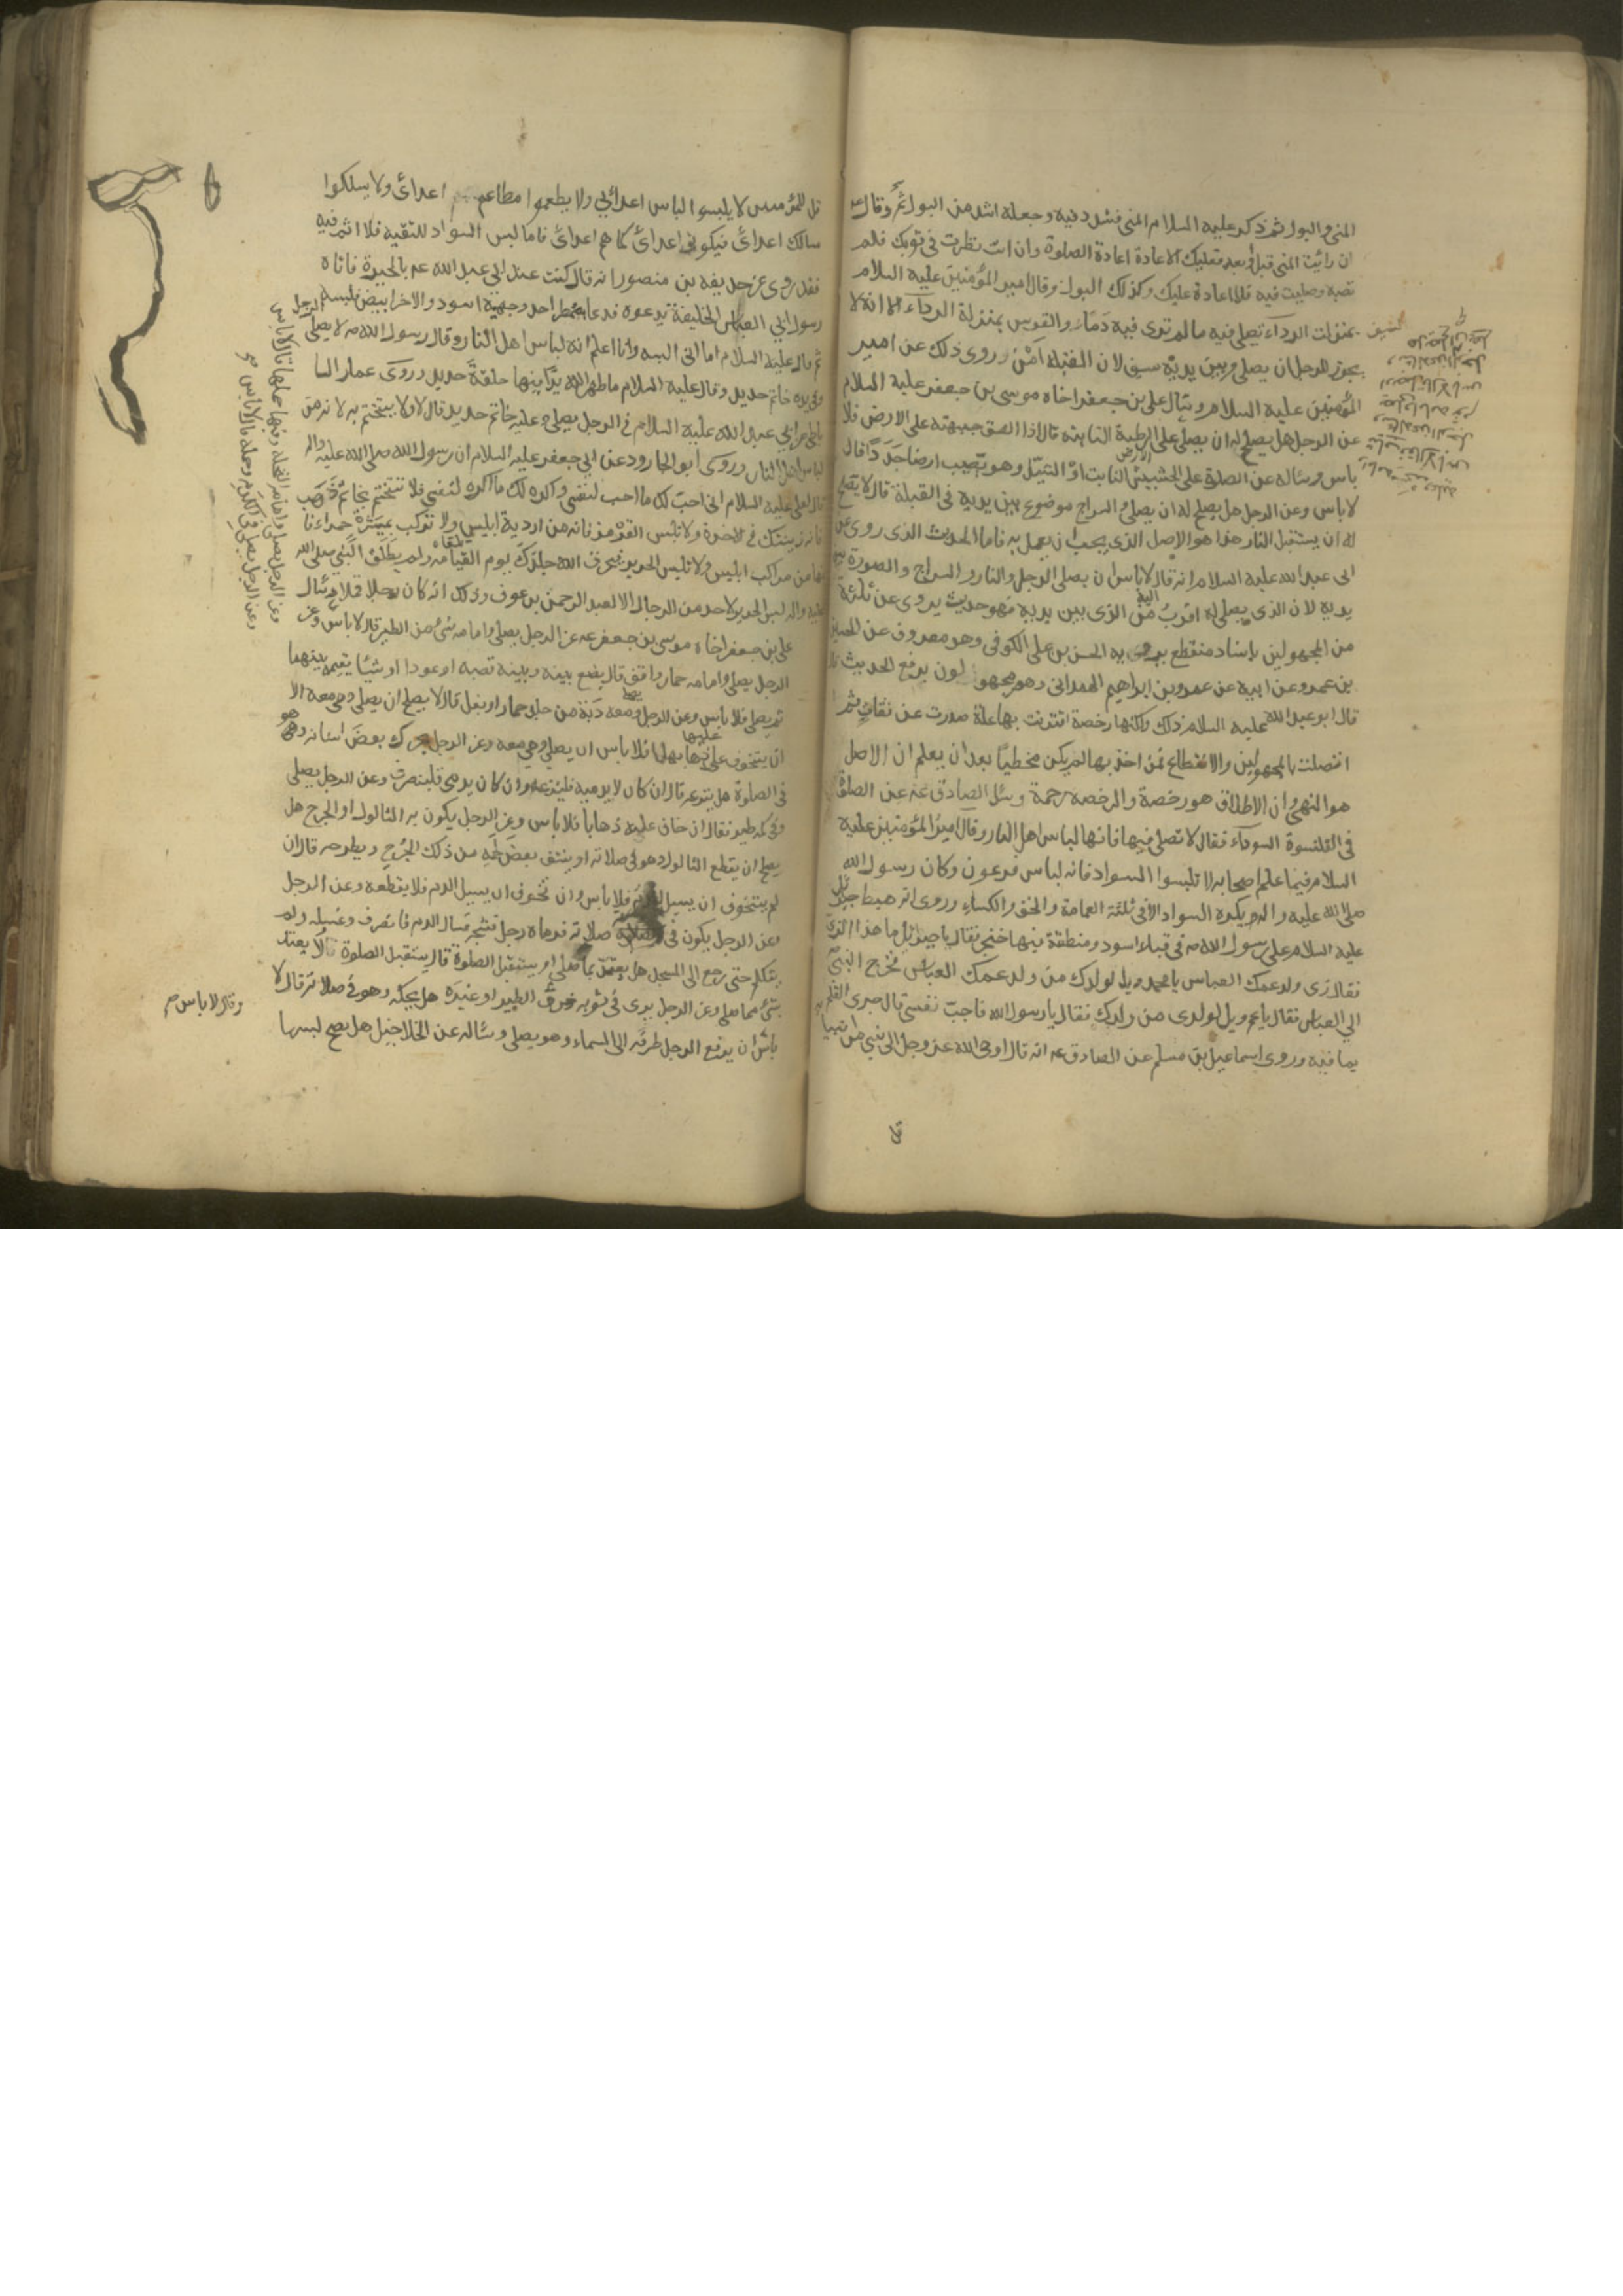 المنى والبول ثم ذكر عليه السلام المنى فشدد فيه وجعله اشد من البول ثم وقال عم
ان رائيت المنى قبل او بعد فعليك الاعادة اعادة الصلوة وان انت نظرت في ثوبك فلم
تصبه وصليت فيه فلا اعادة عليك وكذلك البول وقال امير المؤمنين عليه السلام
السيف بمنزلت الرداء تصلي فيه ما لم ترى فيه دما والقوس بمنزلة الرداء الا انه لا
يجوز للرجل ان يصلي وبين يديه سيف لان القبلة امن وروى ذلك عن امير
المؤمنين عليه السلام وسئال علي بن جعفر اخاه موسى بن جعفر عليه السلام
عن الرجل هل يصلح له ان يصلي على الرطبة النابته قال اذا الصق جبهته على الارض فلا
باس وسئاله عن الصلوة على الحشيش النابت او الثيل وهو يصيب ارضا جددا قال
لا باس وعن الرجل هل يصلح له ان يصلي و السراج موضوع بين يديه في القبلة قال لا يصلح
له ان يستقبل النار هذا هو الاصل الذي يجب ان يعمل به فاما الحديث الذي روى عن
ابى عبد الله عليه السلام انه قال لا باس ان يصلي الرجل والنار و السراج والصورة بين
يديه لان الذي يصلي له اقرب اليه من الذي بين يديه فهو حديث يروى عن ثلثة
من المجهولين باسناد منقطع يرويه الحسن بن علي الكوفى وهو معروف عن الحسين
بن عمرو عن ابيه عن عمرو بن ابراهيم الهمدانى وهم مجهولون يرفع الحديث قال
قال ابو عبد الله عليه السلام ذلك ولكنها رخصة اقترنت بها علة صدرت عن ثقات ثم
اتصلت بالمجهولين والانقطاع فمن اخذ بها لم يكن مخطيا بعد ان يعلم ان الاصل
هو النهى وان الاطلاق هو رخصة والرخصه رحمة وسئل الصادق عم عن الصلوة
فى القلنسوة السوداء فقال لا تصلي فيها فانها لباس اهل النار وقال امير المؤمنين عليه
السلام فيما علم اصحابه لا تلبسوا السواد فانه لباس فرعون وكان رسول الله
صلى الله عليه واله يكره السواد الا في ثلثة العمامة والخف والكساء وروى انه هبط جبرئيل
عليه السلام على رسول الله ص في قباء اسود ومنطقة فيها خنجر فقال يا جبرئيل ما هذا الزى
فقال زى ولد عمك العباس يا محمد ويل لولدك من ولد عمك العباس فخرج النبي
الى العباس فقال يا عم ويل لولدى من ولدك فقال يا رسول الله فاجب نفسى قال جرى القلم
بما فيه وروى اسماعيل بن مسلم عن الصادق عم انه قال اوحى الله عز وجل الى نبى من انبيا
قل للمؤمنين لا يلبسوا لباس اعدائي ولا يطعموا مطاعم اعدائ ولا يسلكوا
مسالك اعدائ فيكونوا اعدائ كما هم اعدائ فاما لبس السواد للتقيه فلا اثم فيه
فقد روى عن حذيفه بن منصور انه قال كنت عند ابي عبد الله عم بالحيرة فاتاه
رسول ابي العباس الخليفة يدعوه فدعا بممطر احد وجهيه اسود والاخر ابيض فلبسه
ثم قال عليه السلام اما انى البسه وانا اعلم انه لباس اهل النار وقال رسول الله ص لا يصلي الرجل
وفي يده خاتم حديد وقال عليه السلام ما طهر الله يدا فيها حلقة حديد وروى عمار السا
باطي عن ابي عبد الله عليه السلام في الرجل يصلي وعليه خاتم حديد قال لا ولا يتختم به لانه من
لباس اهل النار وروى ابو الجارود عن ابي جعفر عليه السلام ان رسول الله صلى الله عليه واله
قال لعلي عليه السلام انى احب لك ما احب لنفسى واكره لك ما اكره لنفسى فلا تتختم بخاتم ذهب
فانه زينتك في الاخرة ولا تلبس القرمز فانه من اردية ابليس ولا تركب بميثرة حمراء فا
نها من مراكب ابليس ولا تلبس الحرير فيحرق الله جلدك يوم القيامه ولم يطلق النبي صلى الله
عليه واله لبس الحرير لاحد من الرجال الا لعبد الرحمن بن عوف وذلك انه كان رجلا قملا وسئال
علي بن جعفر اخاه موسى بن جعفر عم عن الرجل يصلي وامامه شئ من الطير قال لا باس وعن
الرجل يصلي وامامه حمار واقف قال يضع بينه وبينه قصبه او عودا او شيئا يقيمه بينهما
ثم يصلي فلا باس وعن الرجل يصلي ومعه دبة من جلد حمار او بغل قال لا يصلح ان يصلي وهي معه الا
ان يتخوف عليها ذهابها فلا باس ان يصلي وهي معه وعن الرجل يحرك بعض اسنانه وهو
في الصلوة هل ينزعه قال ان كان لا يدميه فلينزعه وان كان يدمى فلينصرف وعن الرجل يصلي
وفي كمه طير فقال ان خاف عليه ذهابا فلا باس وعن الرجل يكون به الثالول او الجرح هل
يصلح ان يقطع الثالول وهو في صلاته او ينتف بعض لحمه من ذلك الجرح ويطرحه قال ان
لم يتخوف ان يسيل الدم فلا باس وان تخوف ان يسيل الدم فلا يقطعه وعن الرجل
وعن الرجل يكون في صلاته فرماه رجل فشجه فسال الدم فانصرف وغسله ولم
يتكلم حتى رجع الى المسجد هل يعتد بما صلى او يستقبل الصلوة قال يستقبل الصلوة ولا يعتد
بشئ مما صلى وعن الرجل يرى في ثوبه خرؤ الطير او غيره هل يحكه وهو في صلاته قال لا
باس ان يرفع الرجل طرفه الى السماء وهو يصلي وسئاله عن الخلاخيل هل يصلح لبسها
وعن الرجل يصلي وامامه النخلة وفيها حملها قال لا باس
وعن الرجل يصلي في الكرم وحمله قال لا باس
وقال لا باس